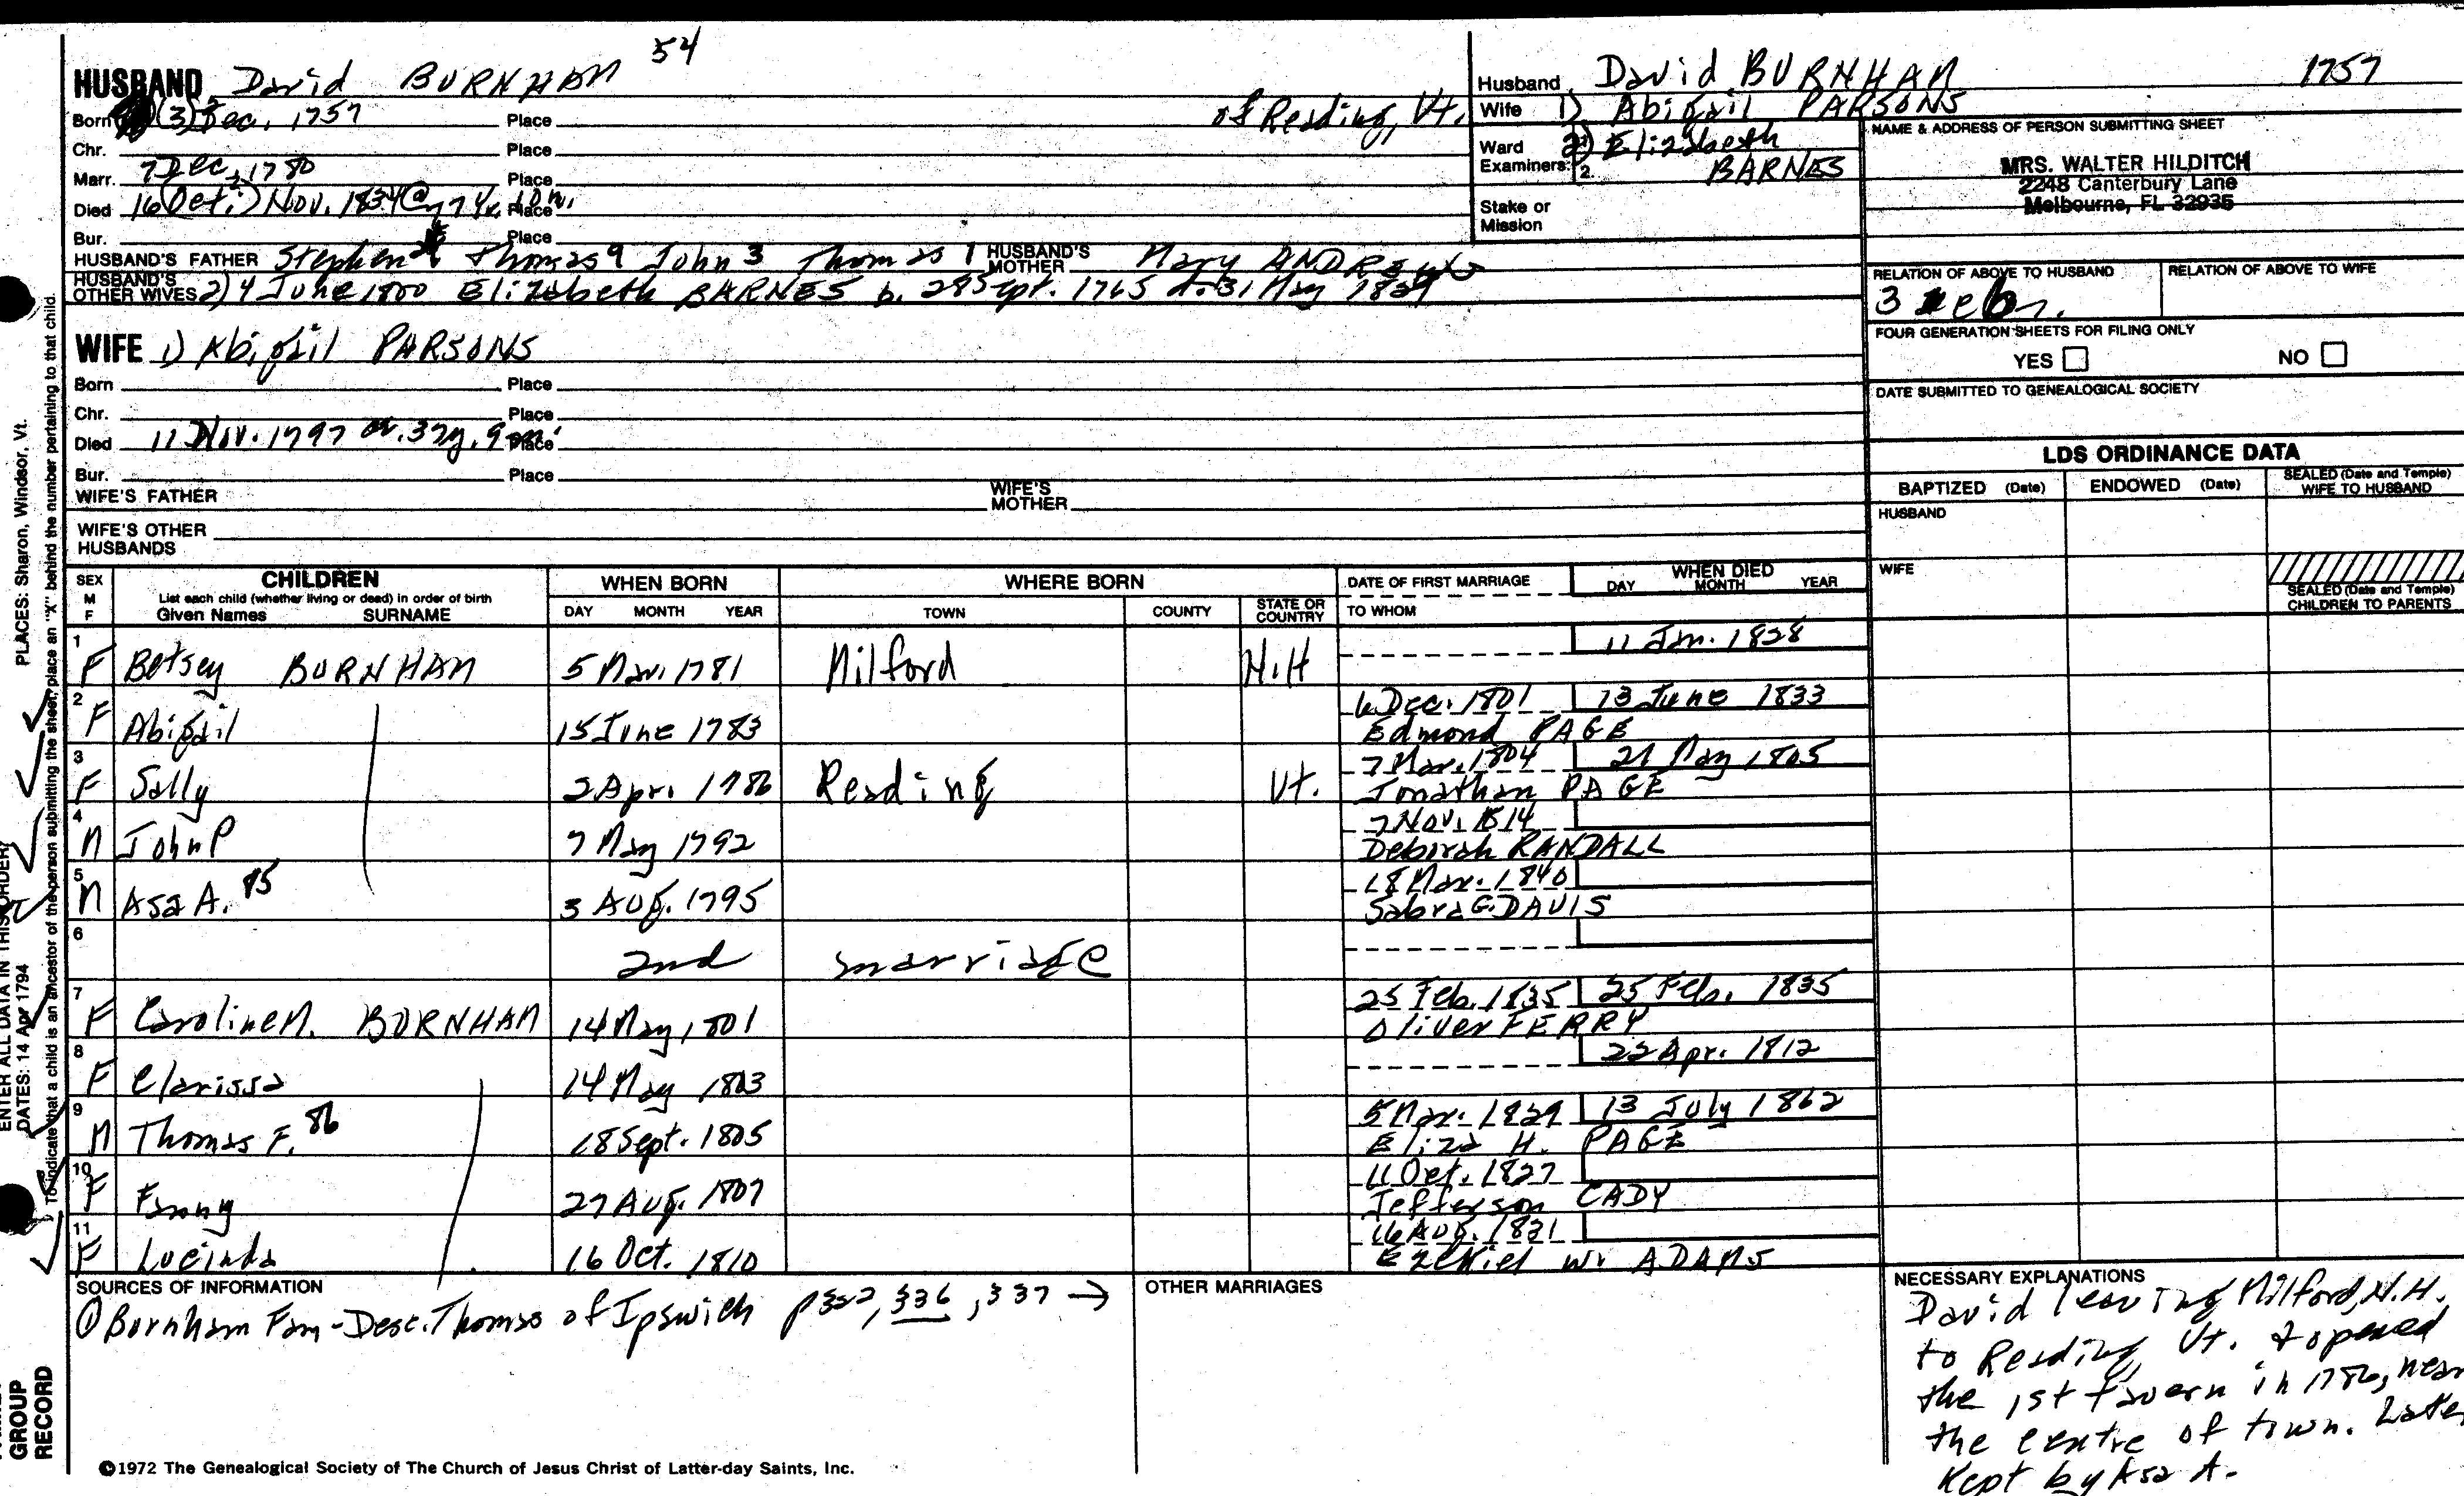 54
HUSBAND David BURNHAM
Born (3) Dec. 1757 Place of Reading, Vt.
Chr. Place
Marr. 7 Dec. 1780 Place
Died 16 (Oct.?) Nov. 1834 @ 77 y. 10 m. Place
Bur. Place
HUSBAND'S FATHER Stephen Thomas 9 John 3 Thomas 1 HUSBAND'S MOTHER Mary ANDREWS
HUSBAND'S OTHER WIVES 2) 4 June 1800 Elizabeth BARNES b. 28 Sept. 1765 d. 31 May 1829
Husband David BURNHAM 1757
Wife 1) Abigail PARSONS
Ward 2) Elizabeth
Examiners: 2. BARNES
Stake or Mission
NAME & ADDRESS OF PERSON SUBMITTING SHEET
MRS. WALTER HILDITCH
2248 Canterbury Lane
Melbourne, FL 32935
RELATION OF ABOVE TO HUSBAND RELATION OF ABOVE TO WIFE
3
FOUR GENERATION SHEETS FOR FILING ONLY
YES NO
DATE SUBMITTED TO GENEALOGICAL SOCIETY
WIFE 1) Abigail PARSONS
Born Place
Chr. Place
Died 11 Nov. 1797 37 y. 9 m. Place
Bur. Place
WIFE'S FATHER WIFE'S MOTHER
WIFE'S OTHER HUSBANDS
LDS ORDINANCE DATA
BAPTIZED (Date) ENDOWED (Date) SEALED (Date and Temple) WIFE TO HUSBAND
HUSBAND
WIFE
SEALED (Date and Temple) CHILDREN TO PARENTS
SEX M F CHILDREN List each child (whether living or dead) in order of birth Given Names SURNAME
WHEN BORN DAY MONTH YEAR
WHERE BORN TOWN COUNTY STATE OR COUNTRY
DATE OF FIRST MARRIAGE TO WHOM
WHEN DIED DAY MONTH YEAR
1 11 Jan. 1828
F Betsey BURNHAM 5 Mar. 1781 Milford N.H
2 6 Dec. 1801 13 June 1833
F Abigail 15 June 1783 Edmond PAGE
3 7 Mar. 1804 21 May 1805
F Sally 2 Apr. 1786 Reading Vt. Jonathan PAGE
4 7 Nov. 1814
M John P 7 May 1792 Deborah RANDALL
5 18 Mar. 1840
M Asa A. 85 3 Aug. 1795 Sabra G. DAVIS
6 2nd marriage
7 25 Feb. 1835 25 Feb. 1835
F Caroline M. BURNHAM 14 May, 1801 Oliver FERRY
8 22 Apr. 1812
F Clarissa 14 May 1803
9 5 Mar. 1829 13 July 1862
M Thomas F. 86 18 Sept. 1805 Eliza H. PAGE
10 11 Oct. 1827
F Fanny 27 Aug. 1807 Jefferson CADY
11 16 Aug. 1831
F Lucinda 16 Oct. 1810 Ezekiel W. ADAMS
SOURCES OF INFORMATION
① Burnham Fam - Desc. Thomas of Ipswich 336, 337 →
OTHER MARRIAGES
NECESSARY EXPLANATIONS
David leaving Milford, N.H.
to Reading, Vt. & opened
the 1st tavern in 1786, near
the centre of town. Later
Kept by Asa A.
©1972 The Genealogical Society of The Church of Jesus Christ of Latter-day Saints, Inc.
PLACES: Sharon, Windsor, Vt.
ENTER ALL DATA IN THIS ORDER:
DATES: 14 Apr 1794
To indicate that a child is an ancestor of the person submitting the sheet, place an "X" behind the number pertaining to that child.
GROUP
RECORD